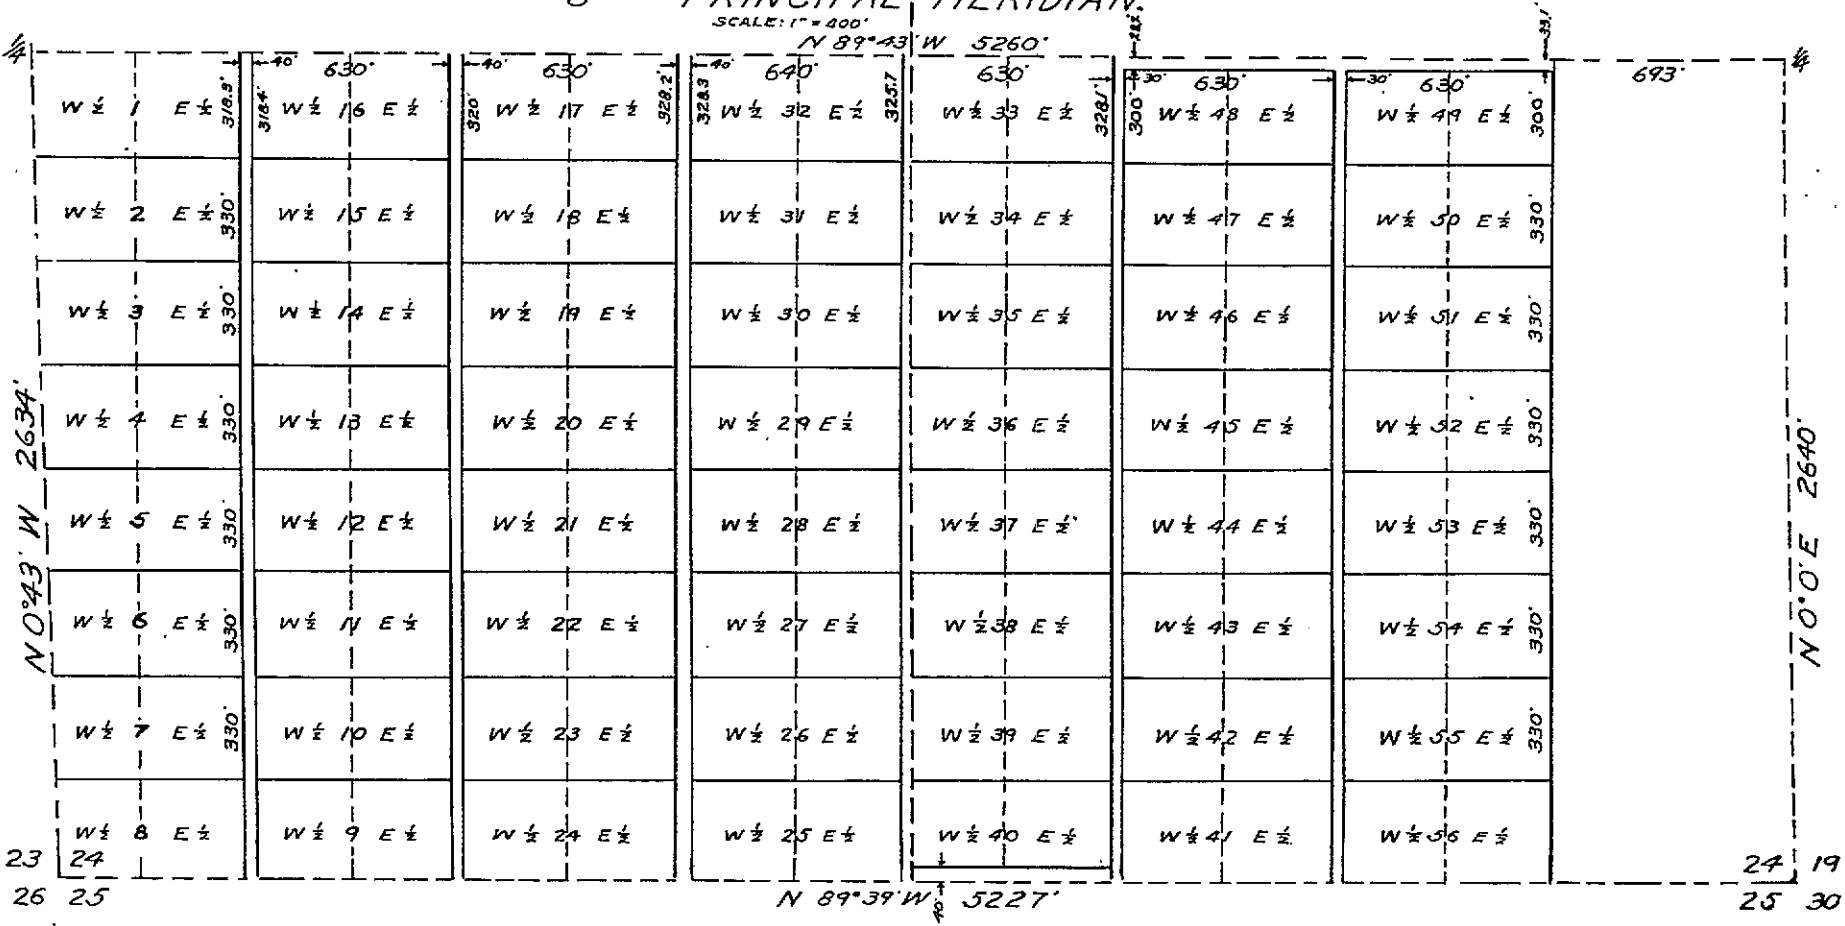 PRINCIPAL MERIDIAN.
SCALE: 1" = 400'
N 89°43' W 5260'
1/4 40' 630' 40' 630' 40' 640' 630' 30' 630' 30' 630' 33.1' 693' 1/4
W ½ 1 E ½ 318.9' 318.4' W ½ 16 E ½ 320' W ½ 17 E ½ 328.2' 328.3 W ½ 32 E ½ 325.7 W ½ 33 E ½ 328.1' 300' W ½ 48 E ½ W ½ 49 E ½ 300'
W ½ 2 E ½ 330' W ½ 15 E ½ W ½ 18 E ½ W ½ 31 E ½ W ½ 34 E ½ W ½ 47 E ½ W ½ 50 E ½ 330'
W ½ 3 E ½ 330' W ½ 14 E ½ W ½ 19 E ½ W ½ 30 E ½ W ½ 35 E ½ W ½ 46 E ½ W ½ 51 E ½ 330'
W ½ 4 E ½ 330' W ½ 13 E ½ W ½ 20 E ½ W ½ 29 E ½ W ½ 36 E ½ W ½ 45 E ½ W ½ 52 E ½ 330'
W ½ 5 E ½ 330' W ½ 12 E ½ W ½ 21 E ½ W ½ 28 E ½ W ½ 37 E ½ W ½ 44 E ½ W ½ 53 E ½ 330'
W ½ 6 E ½ 330' W ½ 11 E ½ W ½ 22 E ½ W ½ 27 E ½ W ½ 38 E ½ W ½ 43 E ½ W ½ 54 E ½ 330'
W ½ 7 E ½ 330' W ½ 10 E ½ W ½ 23 E ½ W ½ 26 E ½ W ½ 39 E ½ W ½ 42 E ½ W ½ 55 E ½ 330'
W ½ 8 E ½ W ½ 9 E ½ W ½ 24 E ½ W ½ 25 E ½ W ½ 40 E ½ W ½ 41 E ½ W ½ 56 E ½
N 0°43' W 2634'
N 0°0' E 2640'
23 24 24 19
26 25 N 89°39' W 40' 5227' 25 30